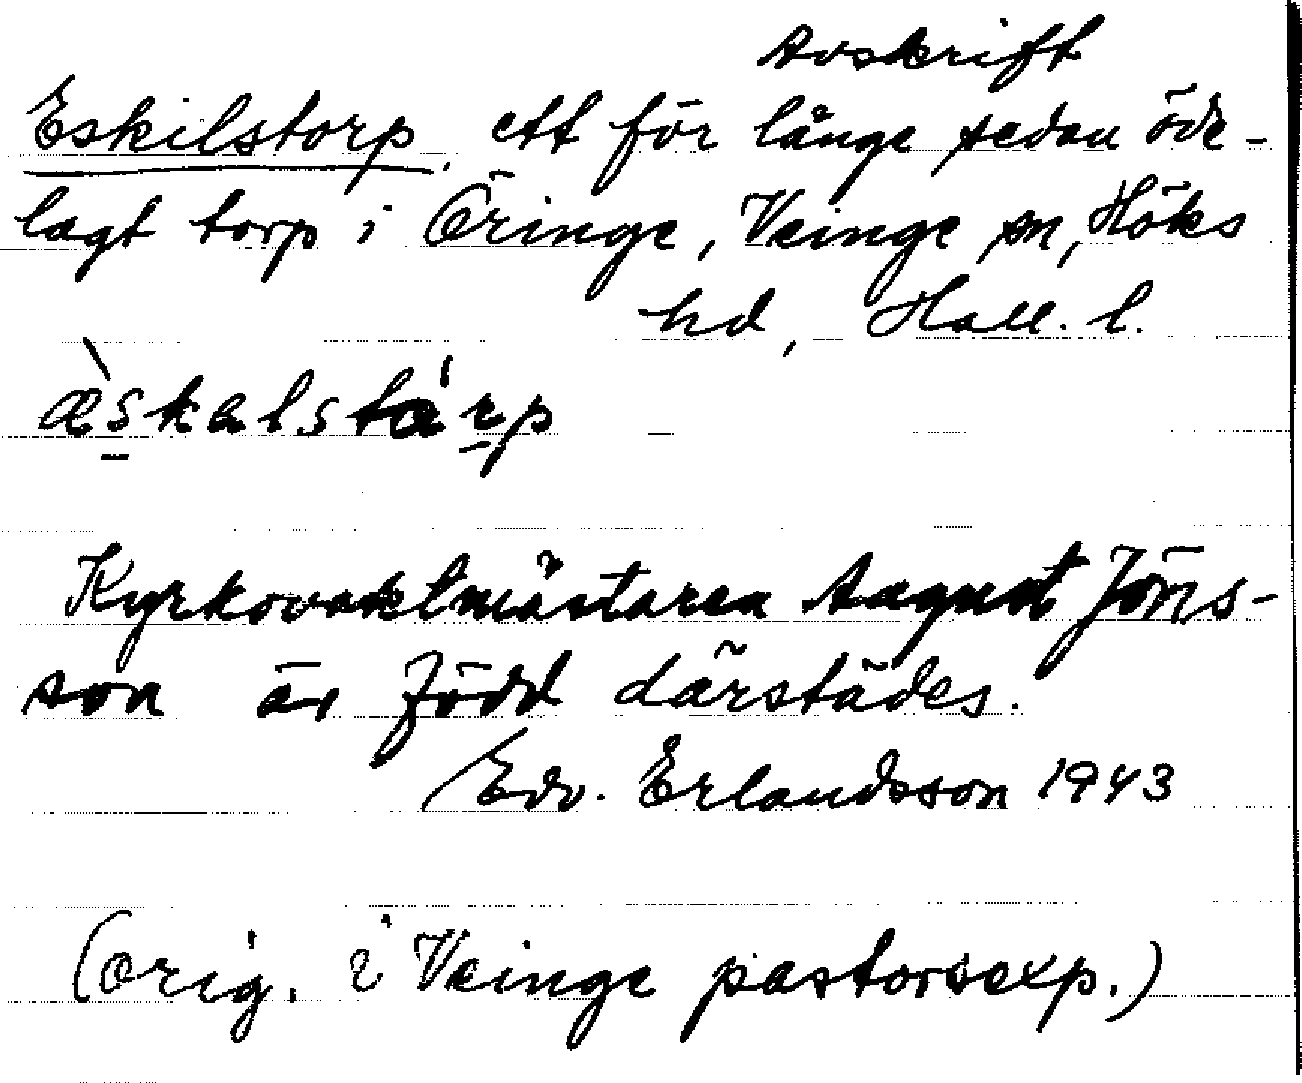 Avskrift
Eskilstorp, ett för länge sedan öde-
lagt torp i Öringe, Veinge sn, Höks
hd, Hall. l.
æ̀skalstárp
Kyrkovaktmästaren August Jöns-
son är född därstädes.
Edv. Erlandsson 1943
(orig. i Veinge pastorsexp.)